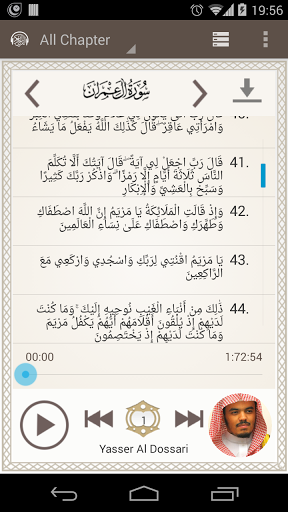 19:56
All Chapter
سورة آل عمران
40.
وَامْرَأَتِي عَاقِرٌ ۖ قَالَ كَذَٰلِكَ اللَّهُ يَفْعَلُ مَا يَشَاءُ
41. قَالَ رَبِّ اجْعَل لِّي آيَةً ۖ قَالَ آيَتُكَ أَلَّا تُكَلِّمَ
النَّاسَ ثَلَاثَةَ أَيَّامٍ إِلَّا رَمْزًا ۗ وَاذْكُر رَّبَّكَ كَثِيرًا
وَسَبِّحْ بِالْعَشِيِّ وَالْإِبْكَارِ
42. وَإِذْ قَالَتِ الْمَلَائِكَةُ يَا مَرْيَمُ إِنَّ اللَّهَ اصْطَفَاكِ
وَطَهَّرَكِ وَاصْطَفَاكِ عَلَىٰ نِسَاءِ الْعَالَمِينَ
43. يَا مَرْيَمُ اقْنُتِي لِرَبِّكِ وَاسْجُدِي وَارْكَعِي مَعَ
الرَّاكِعِينَ
44. ذَٰلِكَ مِنْ أَنبَاءِ الْغَيْبِ نُوحِيهِ إِلَيْكَ ۚ وَمَا كُنتَ
لَدَيْهِمْ إِذْ يُلْقُونَ أَقْلَامَهُمْ أَيُّهُمْ يَكْفُلُ مَرْيَمَ
وَمَا كُنتَ لَدَيْهِمْ إِذْ يَخْتَصِمُونَ
00:00 1:72:54
1
Yasser Al Dossari